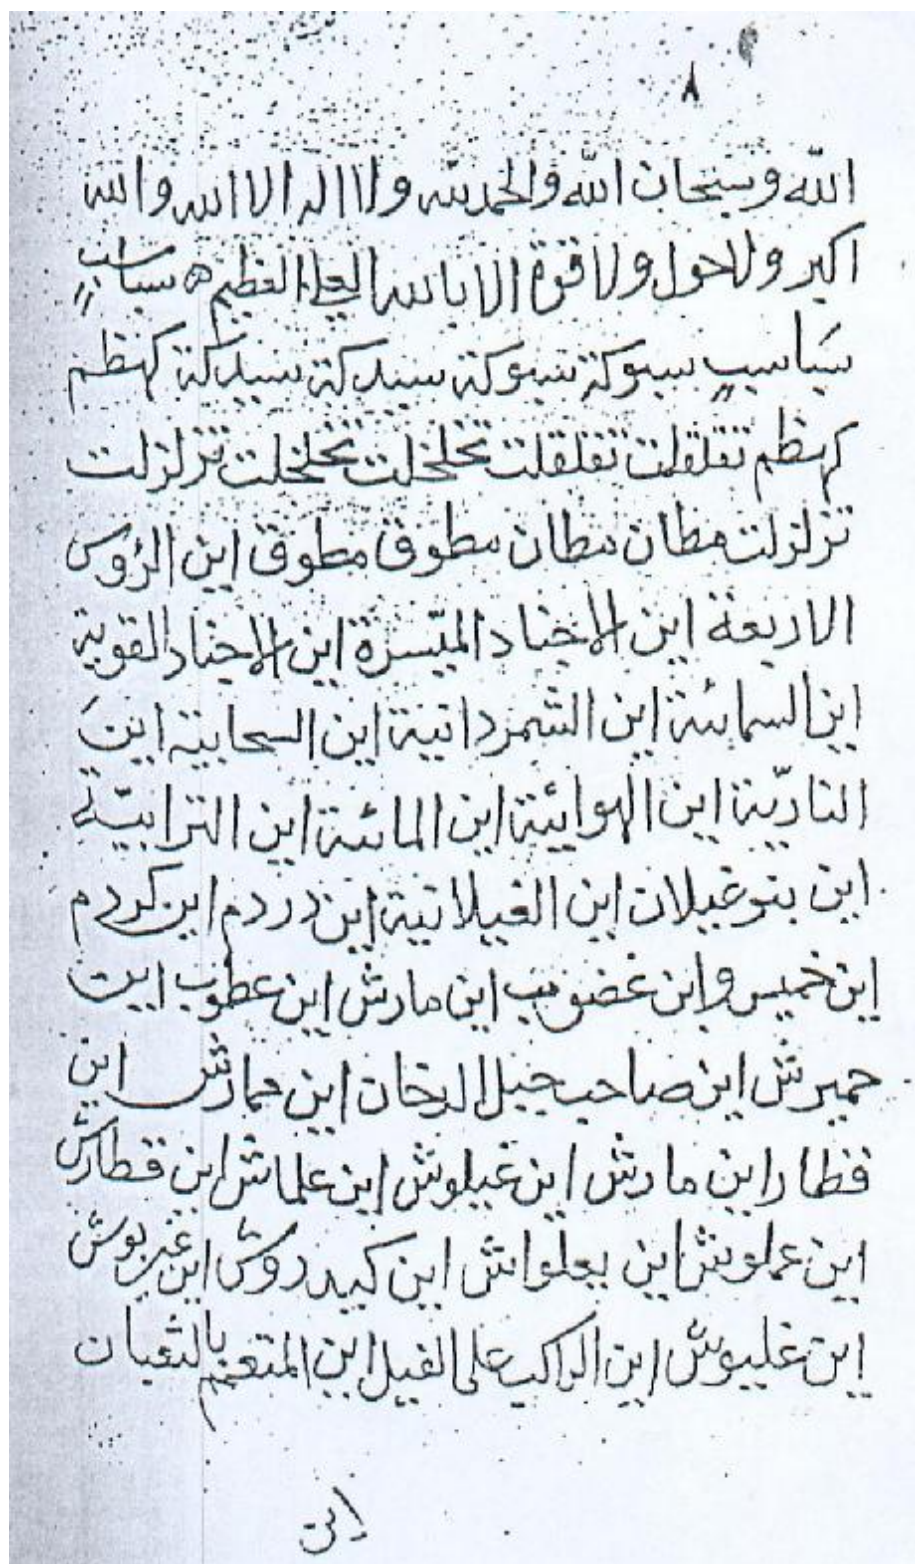 ٨
الله وسبحان الله والحمد لله ولا اله الا الله والله
اكبر ولا حول ولا قوة الا بالله العلي العظيم ه سباسب
سباسب سبوكة سبوكة سندكة سندكة كهظم
كهظم تقلقلت تقلقلت تخلخلت تخلخلت تزلزلت
تزلزلت مطان مطان مطوق مطوق اين الرؤس
الاربعة اين الاجناد الميسرة اين الاجناد القوية
اين السمائية اين الشمردانية اين السحابية اين
النارية اين الهوائية اين المائية اين الترابية
اين بنو غيلان اين الغيلانية اين دردم اين كردم
اين خميس واين غضوب اين مارش اين عطوب اين
حميرش اين صاحب جبل الدخان اين حمارش اين
قطار اين مارش اين غيلوش اين علماش اين قطارش
اين عملوش اين يعلواش اين كيدروش اين غيربوش
اين غليوش اين الراكب على الفيل اين المتعمم بالثعبان
اين